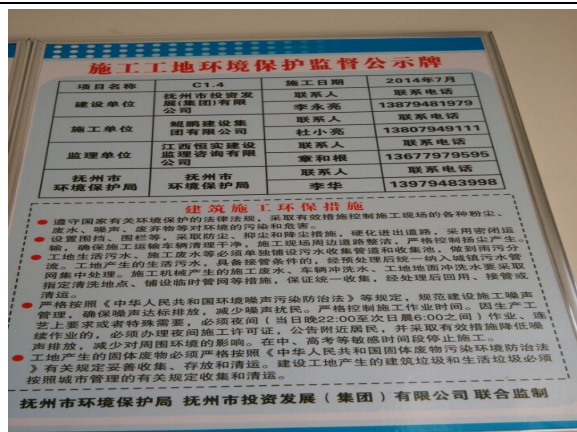 施工工地环境保护监督公示牌
项目名称 C1.4 施工日期 2014年7月
建设单位 抚州市投资发展(集团)有限公司 联系人 联系电话
李永亮 13879481979
施工单位 鲲鹏建设集团有限公司 联系人 联系电话
杜小亮 13807949111
监理单位 江西恒实建设监理咨询有限公司 联系人 联系电话
章和根 13677979595
抚州市环境保护局 抚州市环境保护局 联系人 联系电话
李华 13979483998
建筑施工环保措施
遵守国家有关环境保护的法律法规，采取有效措施控制施工现场的各种粉尘、
废水、噪声、废弃物等对环境的污染和危害。
设置围挡、围栏等，采取防尘、抑尘和降尘措施，硬化进出道路，采用密闭运
输，确保施工运输车辆清理干净，施工现场周边道路整洁，严格控制扬尘产生。
工地生活污水、施工废水等必须单独铺设污水收集管道和收集池，做到雨污分
流。工地产生的生活污水，具备接管条件的，经预处理后统一纳入城镇污水管
网集中处理。施工机械产生的施工废水、车辆冲洗水、工地地面冲洗水要采取
指定清洗地点、铺设临时管网等措施，保证统一收集，经处理后回用、接管或
清运。
严格按照《中华人民共和国环境噪声污染防治法》等规定，规范建设施工噪声
管理，确保噪声达标排放，减少噪声扰民。严格控制施工作业时间。因生产工
艺上要求或者特殊需要，必须夜间(当日晚22:00至次日晨6:00之间)作业、连
续作业的，必须办理夜间施工许可证，公告附近居民，并采取有效措施降低噪
声排放，减少对周围环境的影响。在中、高考等敏感时间段停止施工。
工地产生的固体废物必须严格按照《中华人民共和国固体废物污染环境防治法
》有关规定妥善收集、存放和清运。建设工地产生的建筑垃圾和生活垃圾必须
按照城市管理的有关规定收集和清运。
抚州市环境保护局 抚州市投资发展(集团)有限公司 联合监制